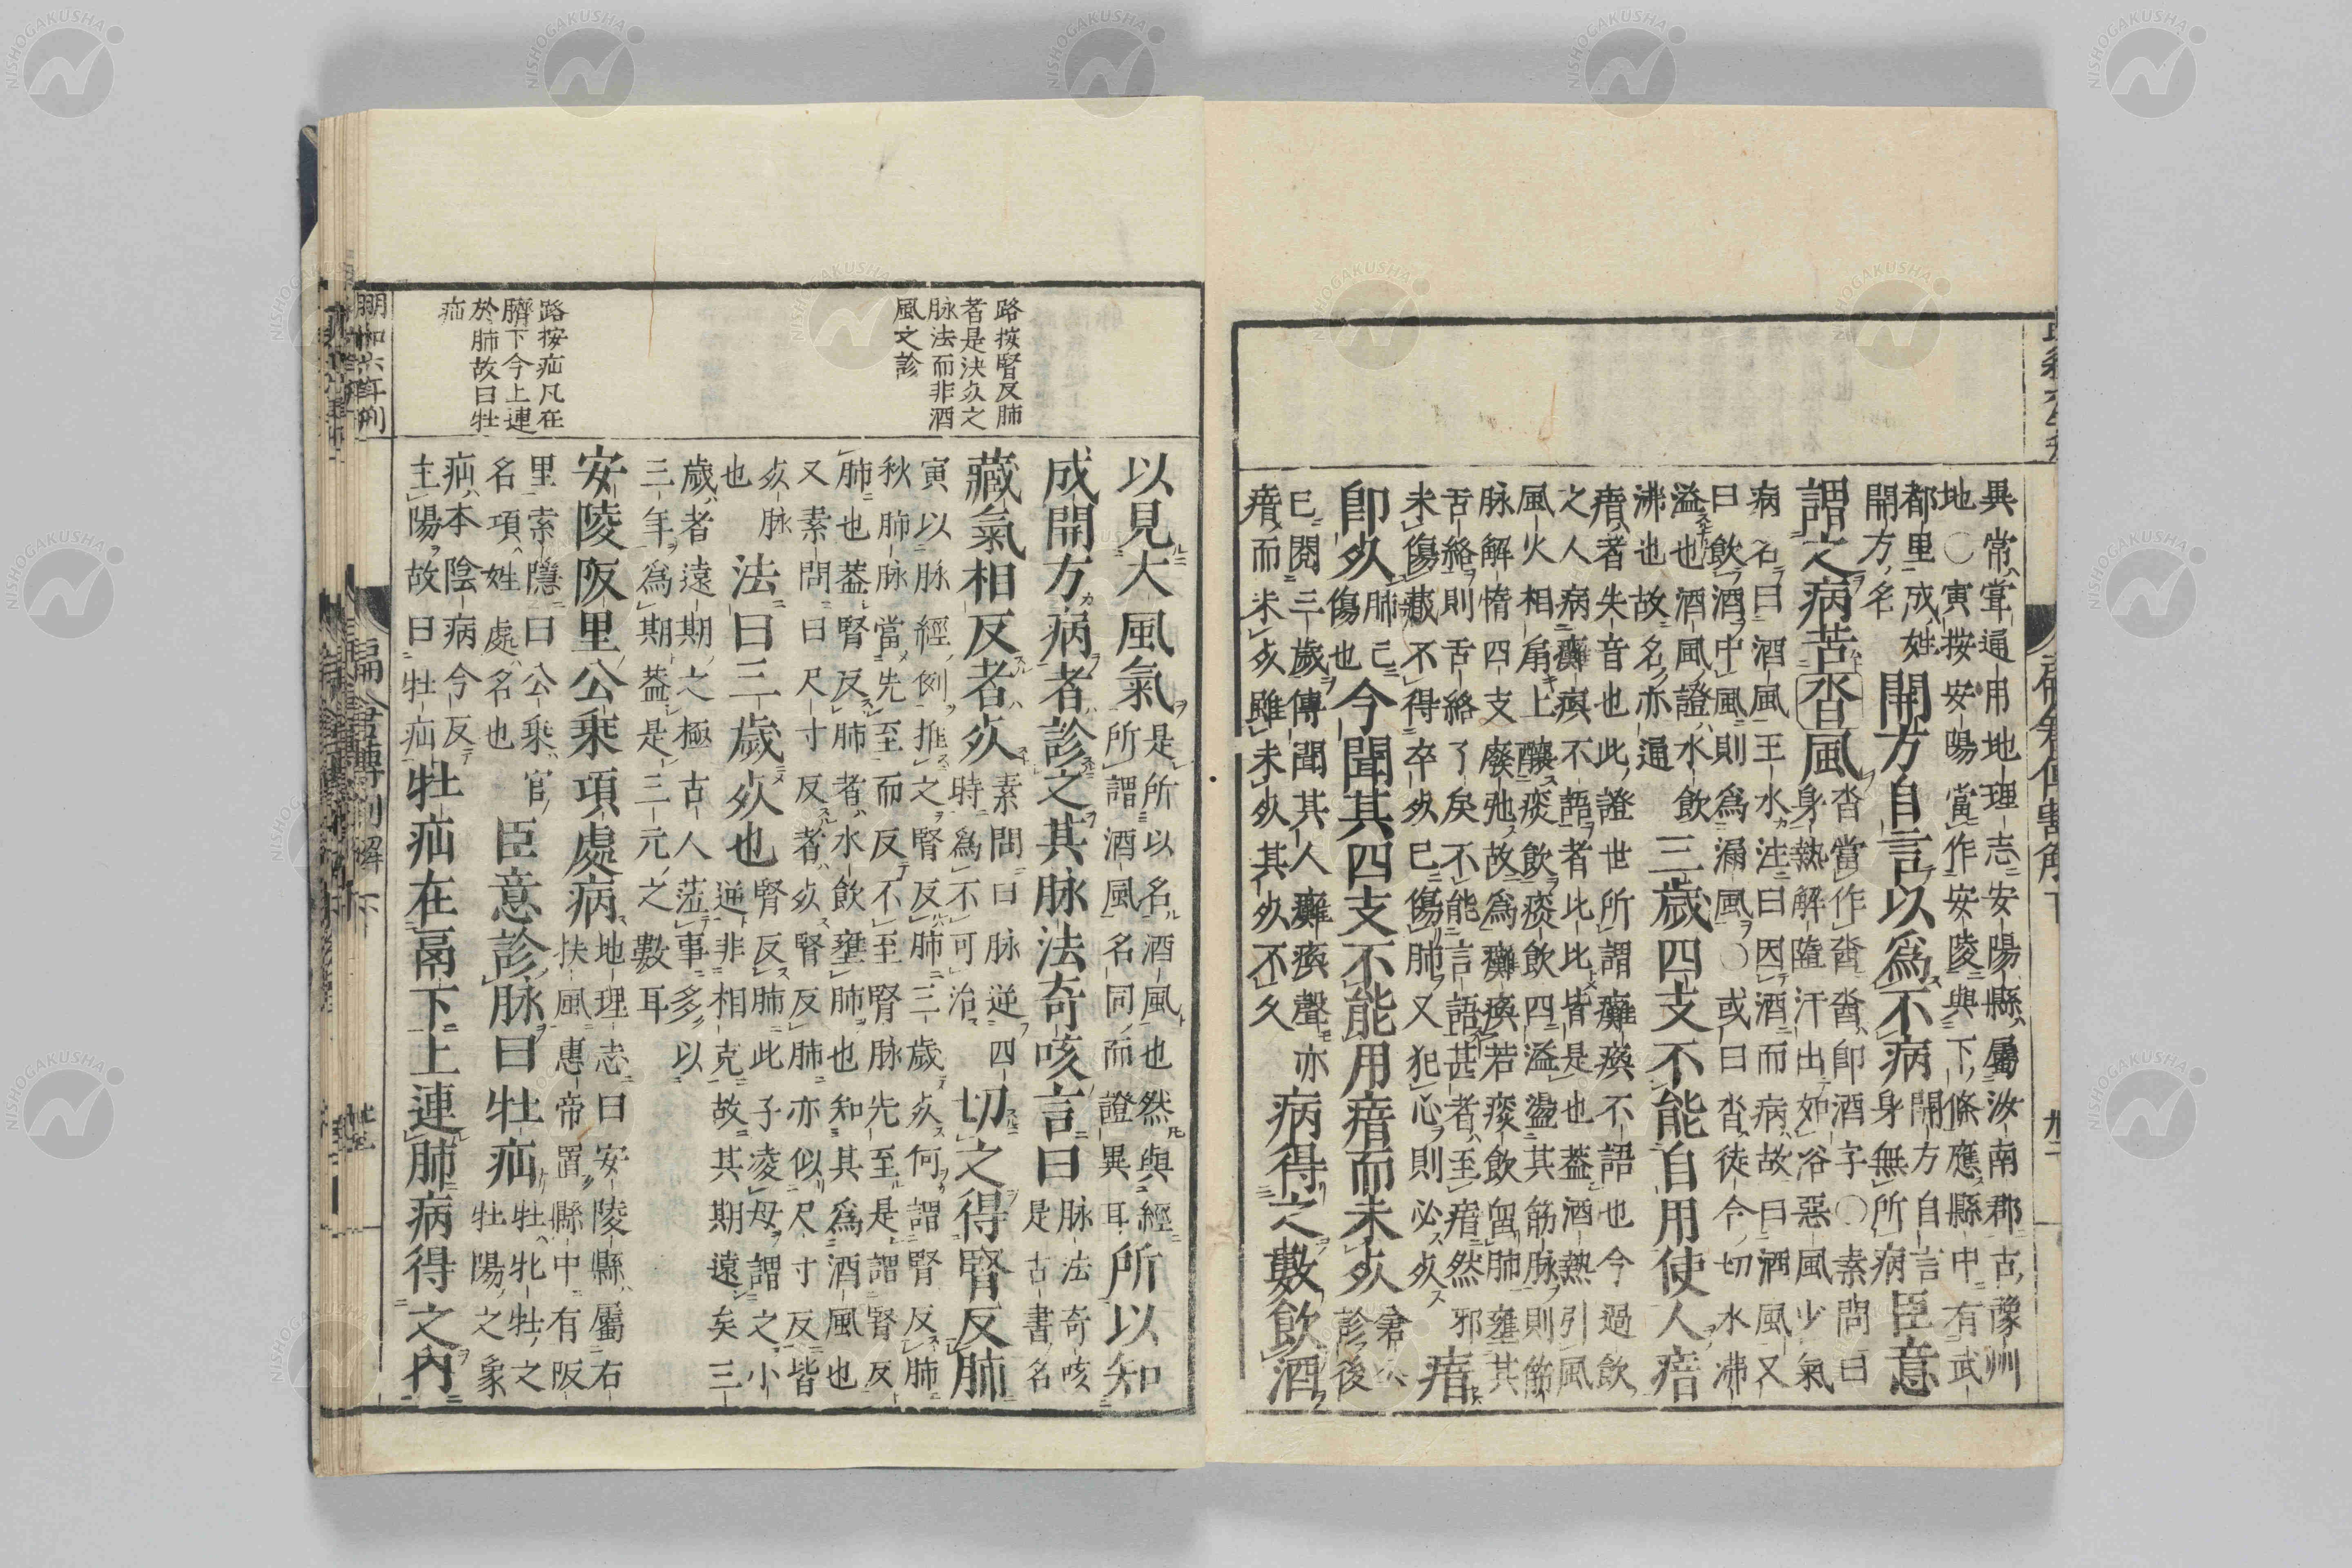 異常甞通用地理志安陽縣屬汝南郡古豫州
地〇寅按安陽當作安陵與下條應縣中有武
都里成姓
開方名
開方自言以爲不病
開方自言
身無所病
臣意
謂之病苦沓風
沓當作㳫㳫即酒字〇素問曰
身熱解隨汗出如浴惡風少氣
病名曰酒風王水注曰因酒而病故曰酒風又
曰飲酒中風則爲漏風〇或曰沓徒合切水沸
溢也酒風證水飲
沸也故名亦通
三歲四支不能自用使人瘖
瘖者失音也此證世所謂癱瘓不語也今過飲
之人病癱瘓不語者比比皆是也蓋酒熱引風
風火相扇上釀痰飲痰飲四溢盪其筋脉則筋
脉解惰四支廢弛故爲癱瘓若痰飲留肺壅其
舌絡則舌絡了戾不能言語甚者至瘖然邪
未傷藏不得卒死已傷肺又犯心則必死
瘖
即死
肺已
傷也
今聞其四支不能用瘖而未死
倉公
診後
已閱三歲傳聞其人癱瘓聲亦
瘖而未死雖未死其死不久
病得之數飲酒
路按腎反肺
者是決死之
脉法而非酒
風之診
以見大風氣
是所以名酒風也然與經
所謂酒風名同而證異耳
所以知
成開方病者診之其脉法奇咳言曰
脉法奇咳
是古書名
藏氣相反者死
素問曰脉逆四
時爲不可治
切之得腎反肺
寅以脉經例推之腎反肺三歲死何謂腎反肺
秋肺脉當先至而反不至腎脉先至是謂腎反
肺也蓋腎反肺者水飲壅肺也知其爲酒風也
又素問曰尺寸反者死腎反肺亦似尺寸反皆
死脉
也
法曰三歲死也
腎反肺此子凌母謂之小
逆非相克故其期遠矣三
歲者遠期之極古人蒞事多以
三年爲期蓋是三元之數耳
路按疝凡在
臍下今上連
於肺故曰牡
疝
安陵阪里公乘項處病
地理志曰安陵縣屬右
扶風惠帝置縣中有阪
里索隱曰公乘官
名項姓處名也
臣意診脉曰牡疝
牡牝牡之
牡陽之象
疝本陰病今反
主陽故曰牡疝
牡疝在鬲下上連肺病得之內
明和六年刊
扁倉傳割解 下
NISHOGAKUSHA